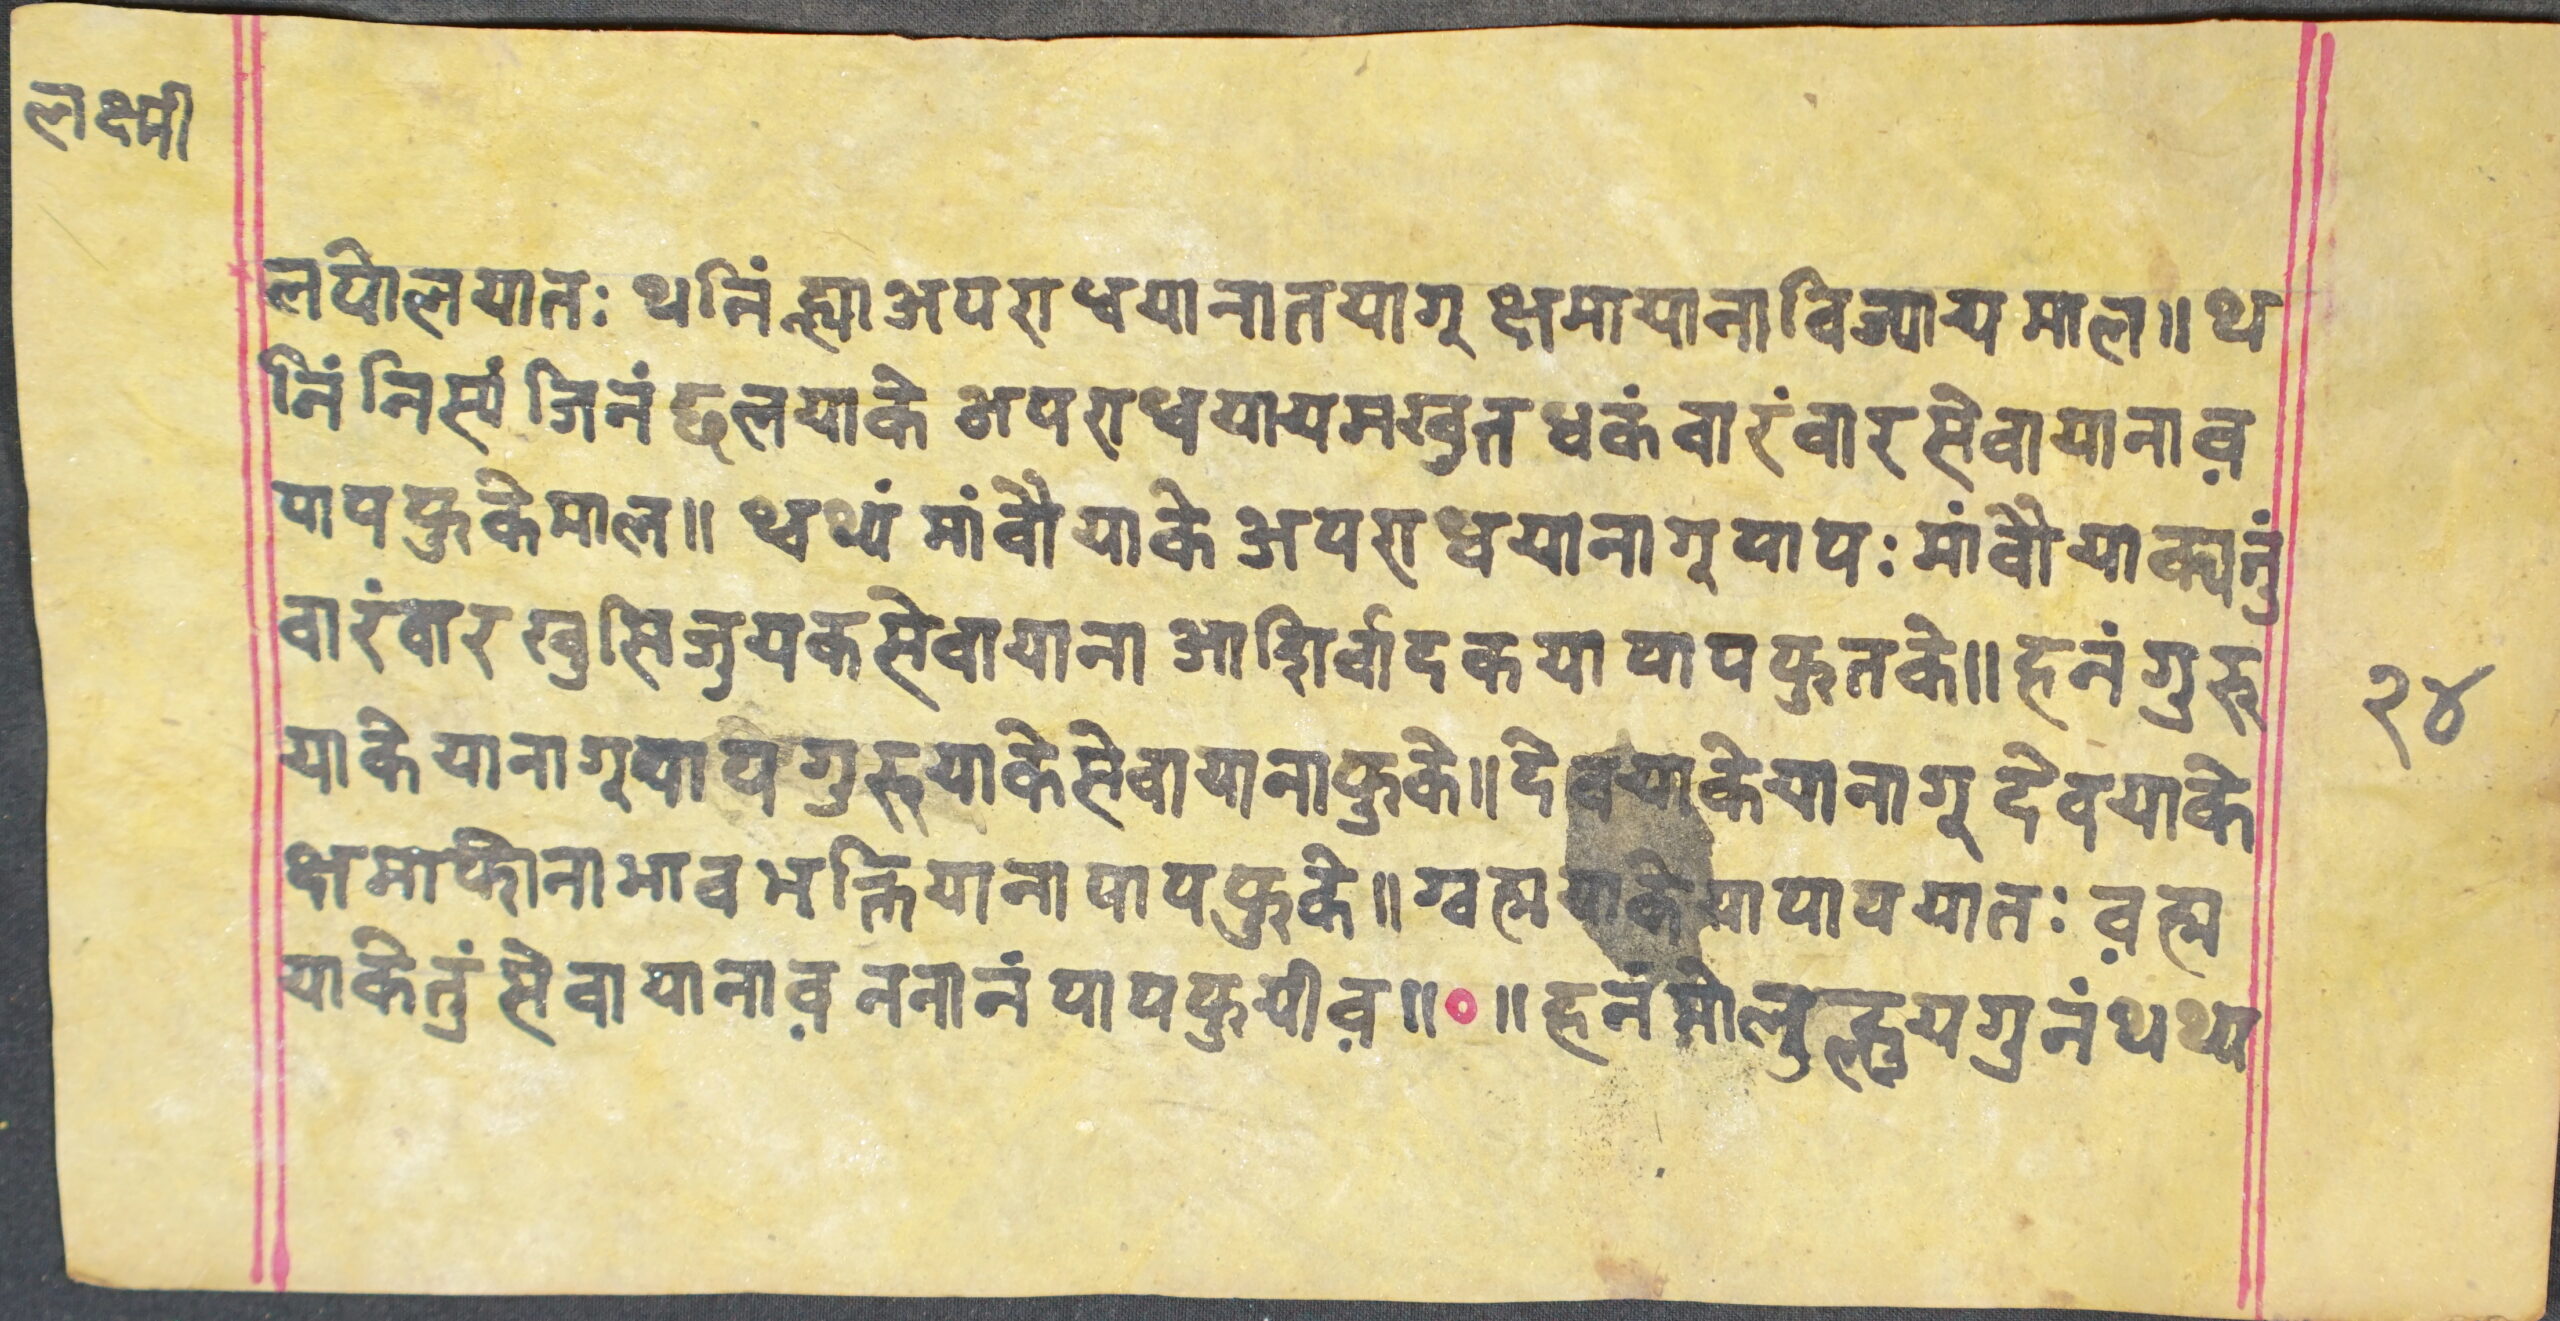 लक्ष्मी
लपोलयातः थनिंह्मा अपराधयानातयागू क्षमायानाविज्यायमाल॥ थ
निं निस्यं जिनं छलयाके अपराधयायमखुत धकं वारंवार सेवायानाव़
पापफुकेमाल॥ थ्वथ्यं मांवौयाके अपराधयानागू पापः मांवौयाक्यनुं
वारंवार खुसिजुयक सेवायाना आशिर्वादकया पापफुतके॥ हनं गुरु
याके यानागू पाप गुरुयाके सेवायानाफुके॥ देवयाके यानागू देवयाके
क्षमाफोना भाव भक्तियाना पापफुके॥ ग्वह्मयाके या पापयातः व़ह्म
याकेतुं सेवायानाव़ ननानं पापफुयीव़॥०॥ हनं मोलुल्हुयगुनं थथ्या
२४